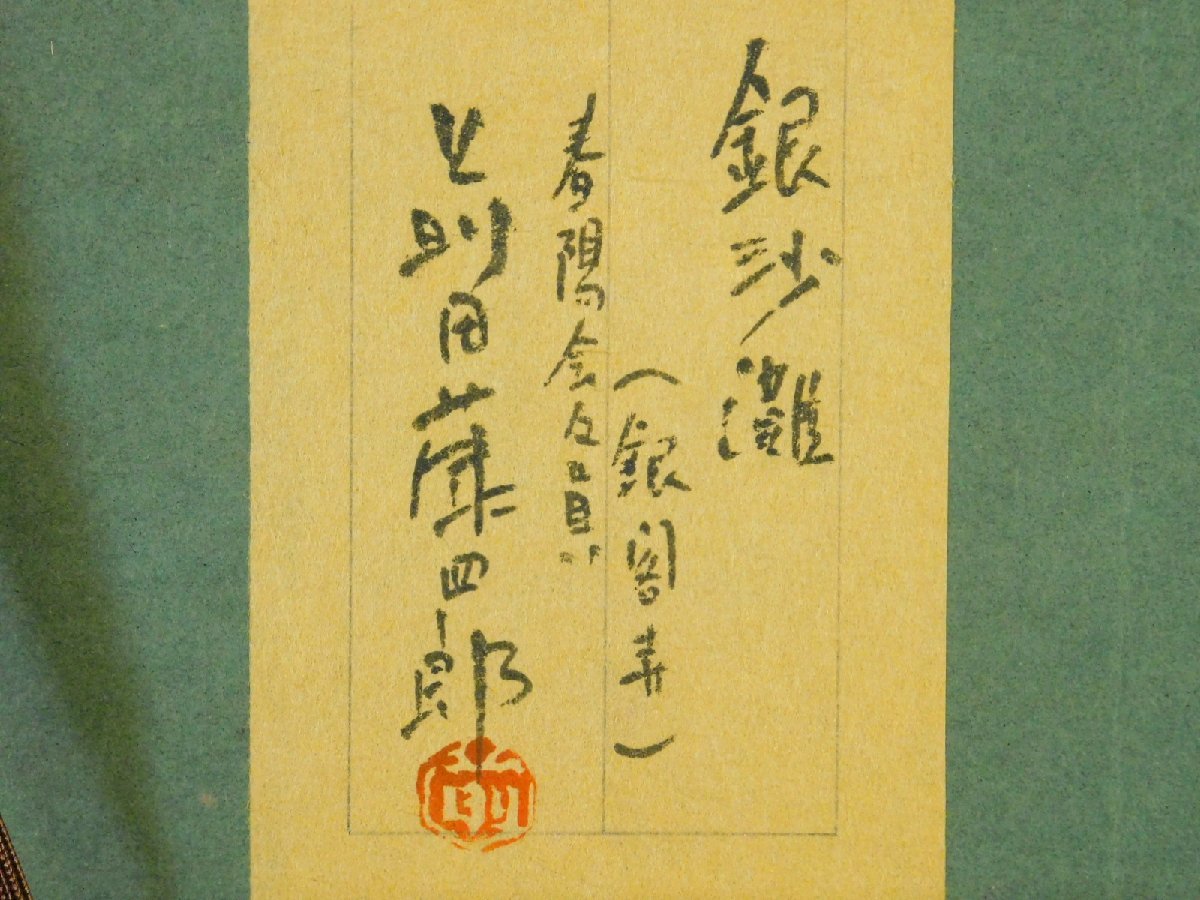 銀沙灘
（銀閣寺）
春陽会々員
前田藤四郎